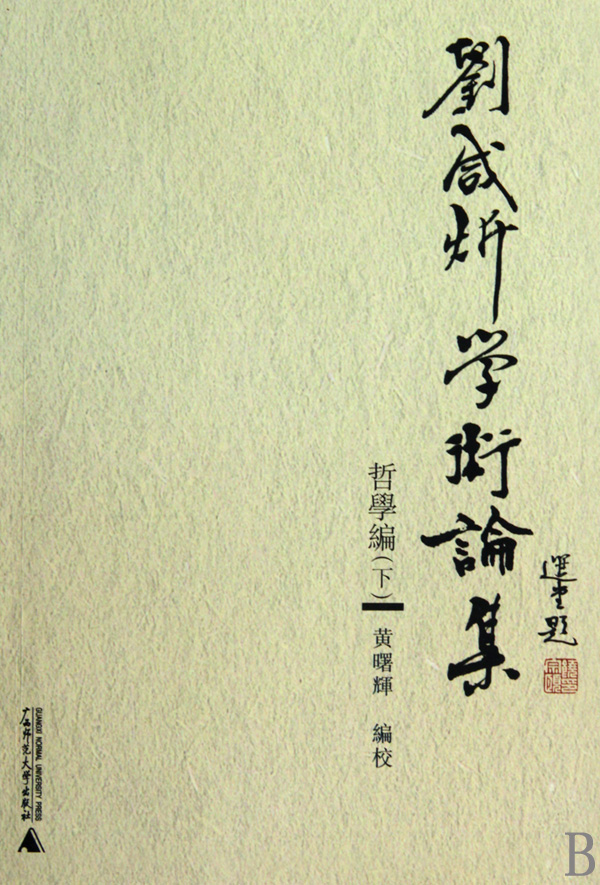 劉咸炘學術論集
選堂題
哲學編(下)
黄曙輝 編校
GUANGXI NORMAL UNIVERSITY PRESS
广西师范大学出版社
B